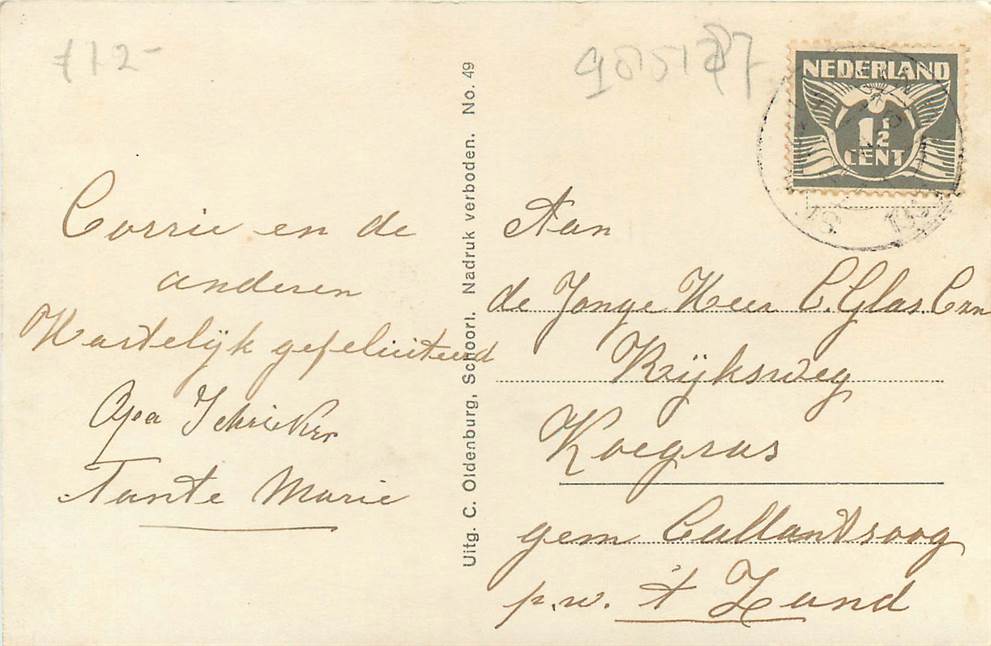 f12-
NEDERLAND
1 1/2
CENT
Corrie en de
anderen
Hartelijk gefeliciteerd
Opa Schrieken
Tante Marie
Uitg. C. Oldenburg, Schoorl. Nadruk verboden. No. 49
Aan
de Jonge Heer C. Glas Czn
Rijksweg
Koegras
gem Callantsoog
p.w. 't Zand